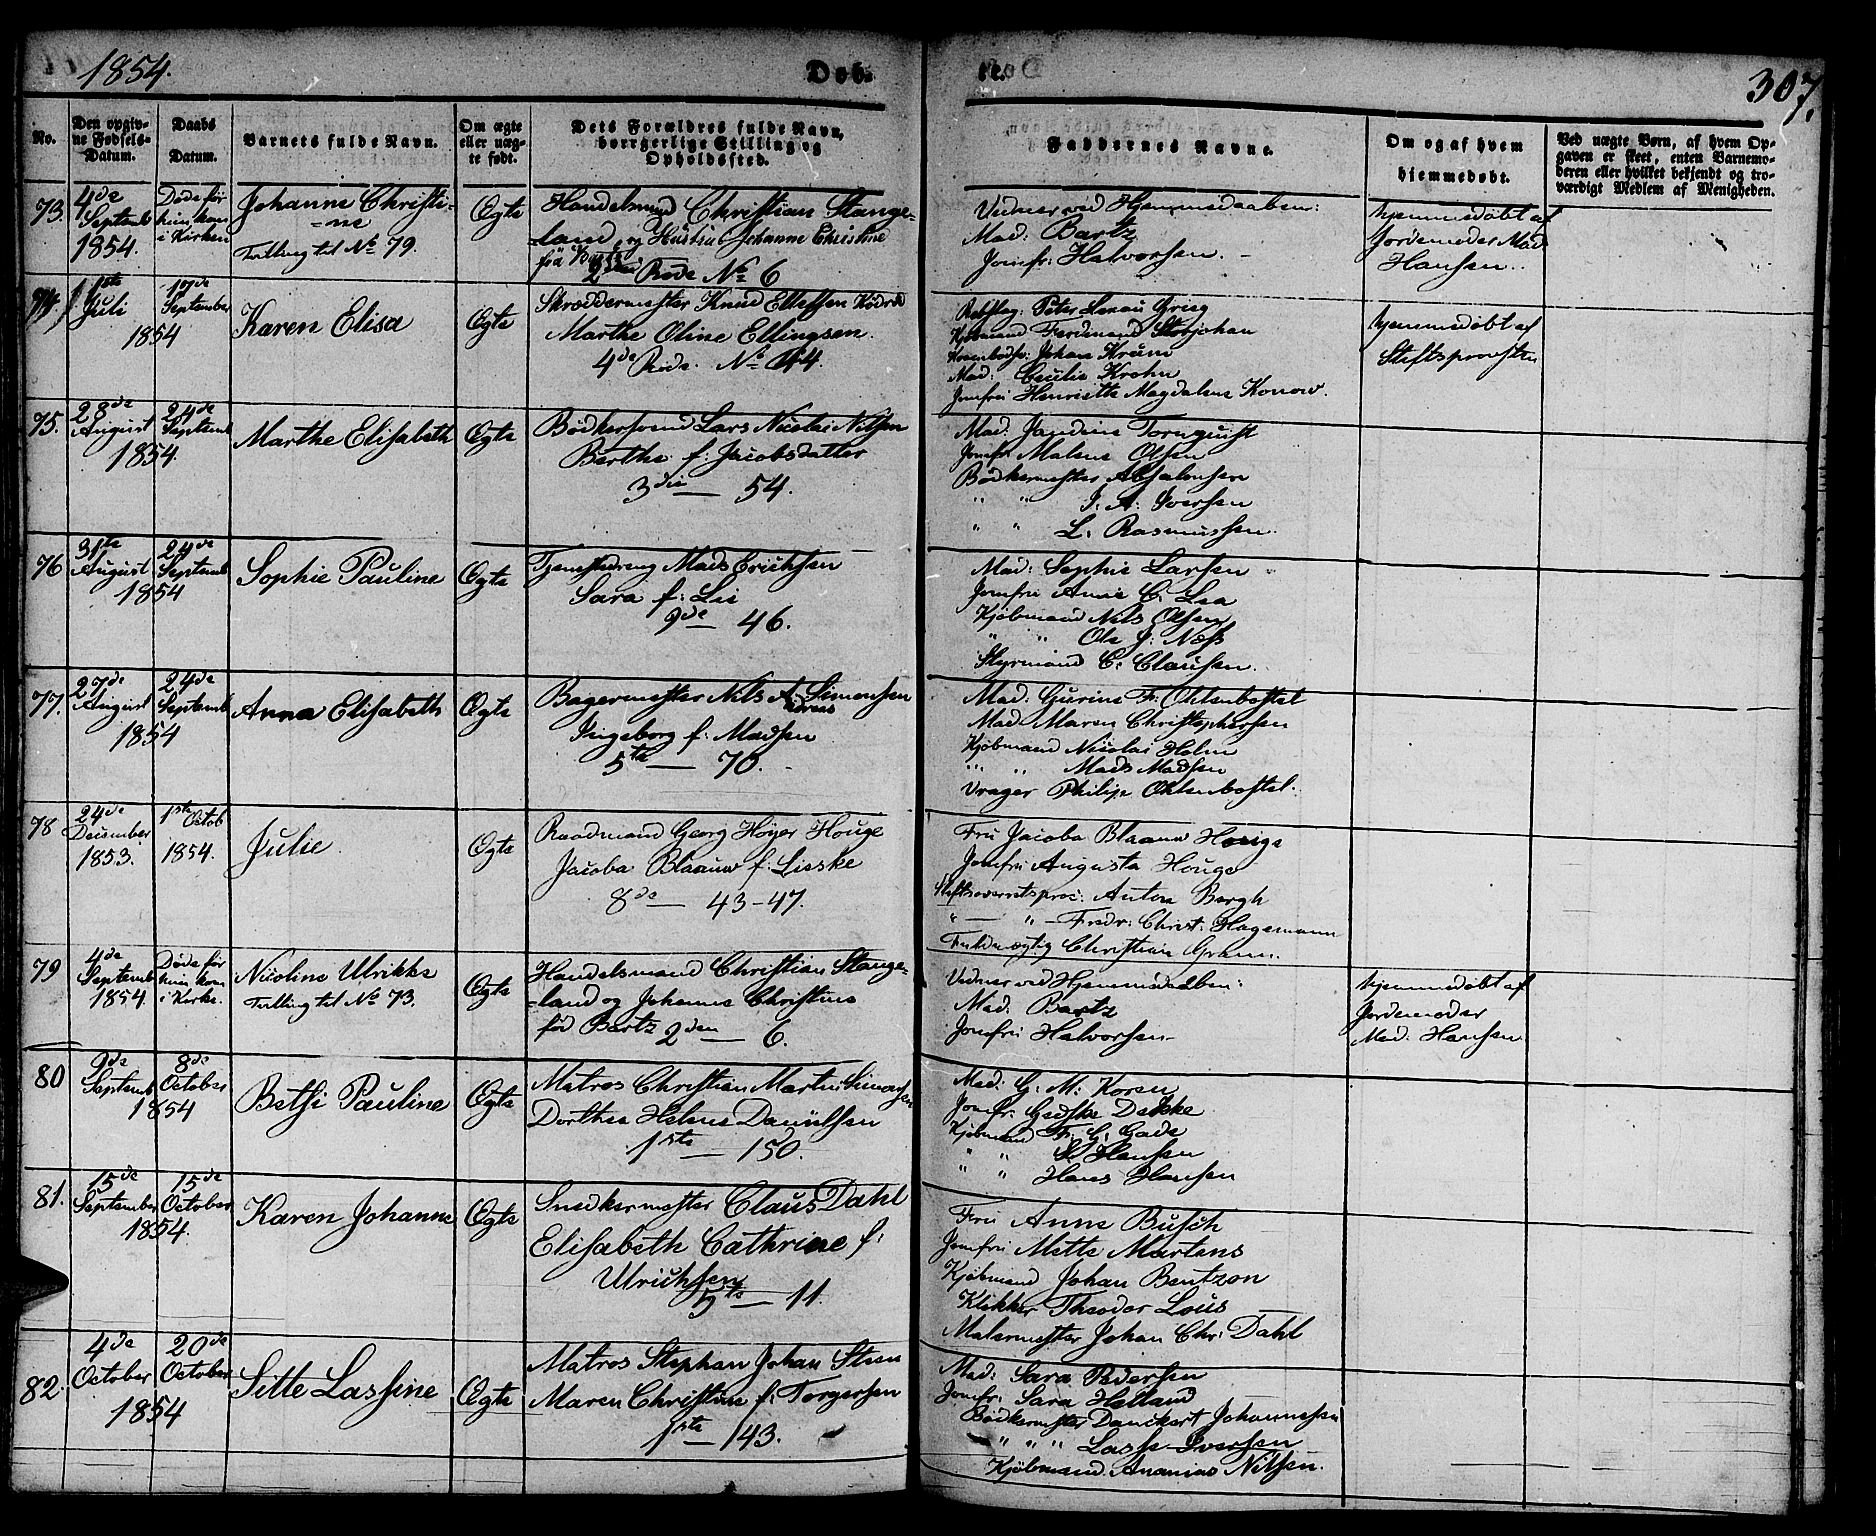 1854.
Døb-
te.
307.
No.
Den opgiv-
ne Fødsels-
Datum.
Daabs
Datum.
Barnets fulde Navn.
Om ægte
eller uæg-
te født.
Dets Forældres fulde Navn,
borgerlige Stilling og
Opholdssted.
Faddernes Navne.
Om og af hvem
hjemmedøbt.
Ved uægte Børn, af hvem Op-
gaven er skeet, enten Barnemo-
deren eller hvilket bekjendt og tro-
værdigt Medlem af Menigheden.
73.
4de
Septemb
1854.
Døde før
hun kom
i Kirken
Johanne Christi-
=ne
Tvilling til No 79.
Ægte
Handelsmand Christian Stange-
=land og Hustru Johanne Christine
fød Bartz
2den Rode No 6
Vidner ved Hjemmedaaben:
Mad: Bartz
Jomfr: Halvorsen.
hjemmedøbt af
Jordemoder Mad
Hansen.
74
1ste
Juli
1854
17de
September
Karen Elisa
Ægte
Skræddermester Knud Ellefsen Kødrø
Marthe Oline Ellingsen.
4de Rode. No 44.
Rebslag: Peter Grieg
Kjøbmand Ferdinand Storjohan
Johan Krum
Mad: Cecilie Krohn
Jomfru Henriette Magdalene Konow.
hjemmedøbt af
Stiftsprovsten
75.
28de
August
1854.
24de
Septemb
Marthe Elisabeth
Ægte
Bødkersvend Lars Nicolai Nilsen
Berthe f: Jacobsdatter
3die — 54.
Mad: Jandine Tornquist
Jomfr Malene Olsen
Bødkermester Absalonsen
" " I. A. Iversen
" " L. Rasmussen.
76
31te
August
1854
24de
Septemb
Sophie Pauline
Ægte
Tjenstedreng Mads Erichsen
Sara f: Lie
9de — 46.
Mad: Sophie Larsen
Jomfru Anne C. Lea
Kjøbmand Nils Olsen
" " Ole J. Næss
Styrmand C. Clausen.
77.
27de
August
1854
24de
Septemb
Anna Elisabeth
Ægte
Bagermester Nils Andreas Simonsen
Ingeborg f: Madsen
5te — 70.
Mad. Gurine F. Ohlenbostel
Mad. Maren Christophersen
Kjøbmand Nicolai Holm
" " Mads Madsen
Vrager Philip Ohlenbostel.
78
24de
December
1853.
1ste Octob
1854.
Julie
Ægte
Raadmand Georg Høyer Houge
Jacoba Blaauw f: Lisske
8de — 43-47.
Fru Jacoba Blaauw Houge
Jomfru Augusta Houge
Stiftsoverretsproc: Anton Bergh
" — " — Fredr: Christ: Hagemann
Fuldmægtig Christian Gram.
79
4de
Septemb
1854.
Døde før
hun kom
i Kirke.
Nicoline Ulrikke
Tvilling til No 73.
Ægte
Handelsmand Christian Stange-
=land og Johanne Christine
fød Bartz 2den — 6.
Vidner ved Hjemmedaaben:
Mad. Bartz
Jomfru Halvorsen
hjemmedøbt af
Jordemoder
Mad. Hansen
80
9de
Septemb
1854
8de
October
Betsi Pauline
Ægte
Matros Christian Martin Simonsen
Dorthea Helene Danielsen
1ste — 150.
Mad. G. M. Koren
Jomfr. Gedske Dekke
Kjøbmand F. G. Gade
" " Hansen
" " Hans Hansen
81.
15de
September
1854.
15de
October
Karen Johanne
Ægte
Snedkermester Claus Dahl
Elisabeth Cathrine f:
Ulrichsen
5te — 11.
Fru Anne Busch
Jomfru Mette Martens
Kjøbmand Johan Bentzon
Klokker Theodor Lous
Malermester Johan Chr: Dahl
82.
4de
October
1854
20de
October
Sitte Lassine
Ægte
Matros Stephan Johan Steen
Maren Christine f: Torgersen
1ste — 143.
Mad. Sara Pedersen
Jomfr: Sara Helland
Bødkermester Danckert Johannesen
" " " Lasse Iversen
Kjøbmand. Ananias Nilsen.